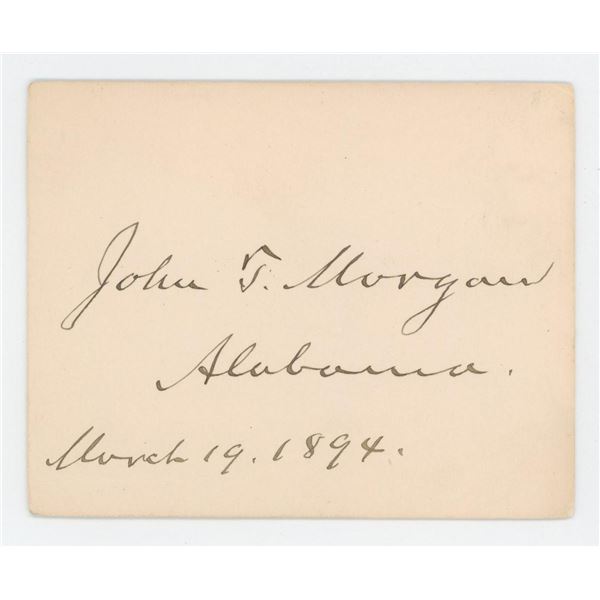 John T. Morgan
Alabama.
March 19. 1894.